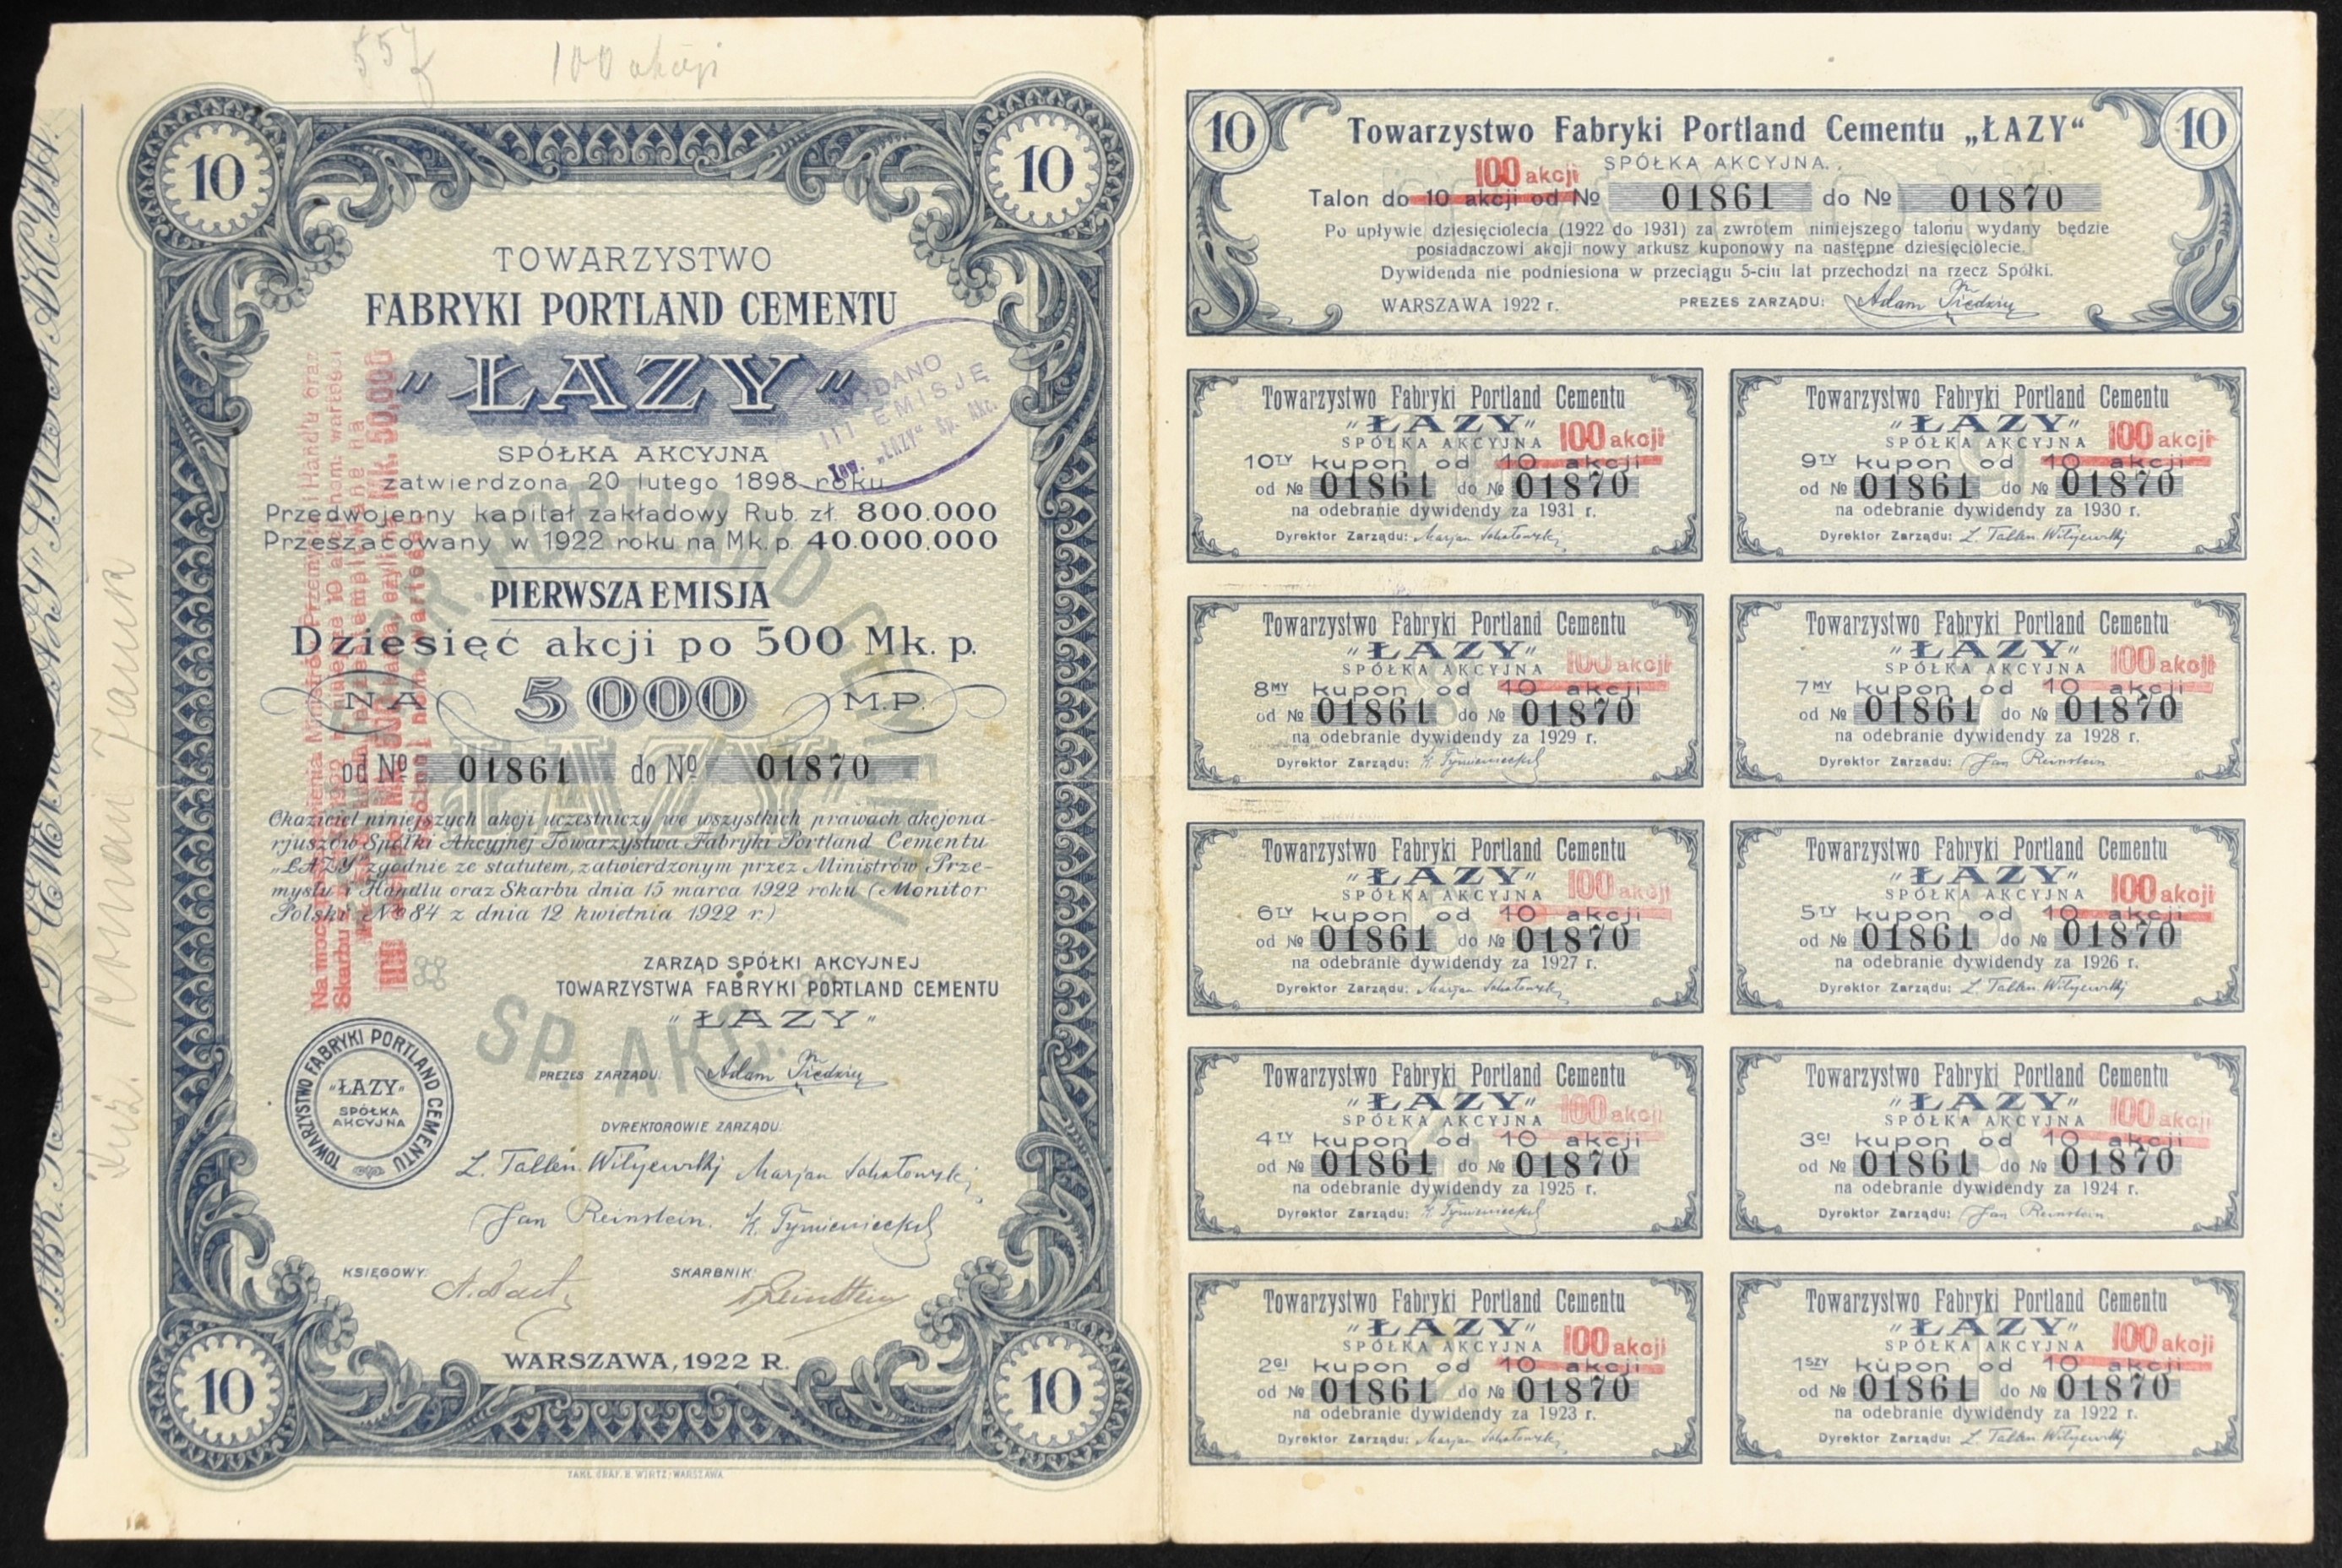 100 akcji
10
10
TOWARZYSTWO
FABRYKI PORTLAND CEMENTU
„ŁAZY”
WYDANO
III EMISJĘ
Tow. „ŁAZY” Sp. Akc.
SPÓŁKA AKCYJNA
zatwierdzona 20 lutego 1898 roku
Przedwojenny kapitał zakładowy Rub. zł. 800.000
Przeszacowany w 1922 roku na Mk. p. 40.000.000
PIERWSZA EMISJA
Dziesięć akcji po 500 Mk. p.
NA 5000 M.P.
od № 01861 do № 01870
Okaziciel niniejszych akcji uczestniczy we wszystkich prawach akcjona-
rjuszów Spółki Akcyjnej Towarzystwa Fabryki Portland Cementu
„ŁAZY” zgodnie ze statutem, zatwierdzonym przez Ministrów Prze-
mysłu i Handlu oraz Skarbu dnia 15 marca 1922 roku (Monitor
Polski № 84 z dnia 12 kwietnia 1922 r.)
ZARZĄD SPÓŁKI AKCYJNEJ
TOWARZYSTWA FABRYKI PORTLAND CEMENTU
„ŁAZY”
SP. AKC.
TOWARZYSTWO FABRYKI PORTLAND CEMENTU
„ŁAZY”
SPÓŁKA
AKCYJNA
PREZES ZARZĄDU:
DYREKTOROWIE ZARZĄDU:
Jan Reinstein.
KSIĘGOWY:
SKARBNIK:
WARSZAWA, 1922 R.
10
10
ZAKŁ. GRAF. B. WIRTZ, WARSZAWA
10
10
Towarzystwo Fabryki Portland Cementu „ŁAZY”
SPÓŁKA AKCYJNA.
100 akcji
Talon do 10 akcji od № 01861 do № 01870
Po upływie dziesięciolecia (1922 do 1931) za zwrotem niniejszego talonu wydany będzie
posiadaczowi akcji nowy arkusz kuponowy na następne dziesięciolecie.
Dywidenda nie podniesiona w przeciągu 5-ciu lat przechodzi na rzecz Spółki.
WARSZAWA 1922 r. PREZES ZARZĄDU:
Towarzystwo Fabryki Portland Cementu
„ŁAZY”
SPÓŁKA AKCYJNA 100 akcji
10TY kupon od 10 akcji
od № 01861 do № 01870
na odebranie dywidendy za 1931 r.
Dyrektor Zarządu:
Towarzystwo Fabryki Portland Cementu
„ŁAZY”
SPÓŁKA AKCYJNA 100 akcji
9TY kupon od 10 akcji
od № 01861 do № 01870
na odebranie dywidendy za 1930 r.
Dyrektor Zarządu:
Towarzystwo Fabryki Portland Cementu
„ŁAZY”
SPÓŁKA AKCYJNA 100 akcji
8MY kupon od 10 akcji
od № 01861 do № 01870
na odebranie dywidendy za 1929 r.
Dyrektor Zarządu:
Towarzystwo Fabryki Portland Cementu
„ŁAZY”
SPÓŁKA AKCYJNA 100 akcji
7MY kupon od 10 akcji
od № 01861 do № 01870
na odebranie dywidendy za 1928 r.
Dyrektor Zarządu: Jan Reinstein.
Towarzystwo Fabryki Portland Cementu
„ŁAZY”
SPÓŁKA AKCYJNA 100 akcji
6TY kupon od 10 akcji
od № 01861 do № 01870
na odebranie dywidendy za 1927 r.
Dyrektor Zarządu:
Towarzystwo Fabryki Portland Cementu
„ŁAZY”
SPÓŁKA AKCYJNA 100 akcji
5TY kupon od 10 akcji
od № 01861 do № 01870
na odebranie dywidendy za 1926 r.
Dyrektor Zarządu:
Towarzystwo Fabryki Portland Cementu
„ŁAZY”
SPÓŁKA AKCYJNA 100 akcji
4TY kupon od 10 akcji
od № 01861 do № 01870
na odebranie dywidendy za 1925 r.
Dyrektor Zarządu:
Towarzystwo Fabryki Portland Cementu
„ŁAZY”
SPÓŁKA AKCYJNA 100 akcji
3CI kupon od 10 akcji
od № 01861 do № 01870
na odebranie dywidendy za 1924 r.
Dyrektor Zarządu: Jan Reinstein.
Towarzystwo Fabryki Portland Cementu
„ŁAZY”
SPÓŁKA AKCYJNA 100 akcji
2GI kupon od 10 akcji
od № 01861 do № 01870
na odebranie dywidendy za 1923 r.
Dyrektor Zarządu:
Towarzystwo Fabryki Portland Cementu
„ŁAZY”
SPÓŁKA AKCYJNA 100 akcji
1SZY kupon od 10 akcji
od № 01861 do № 01870
na odebranie dywidendy za 1922 r.
Dyrektor Zarządu: